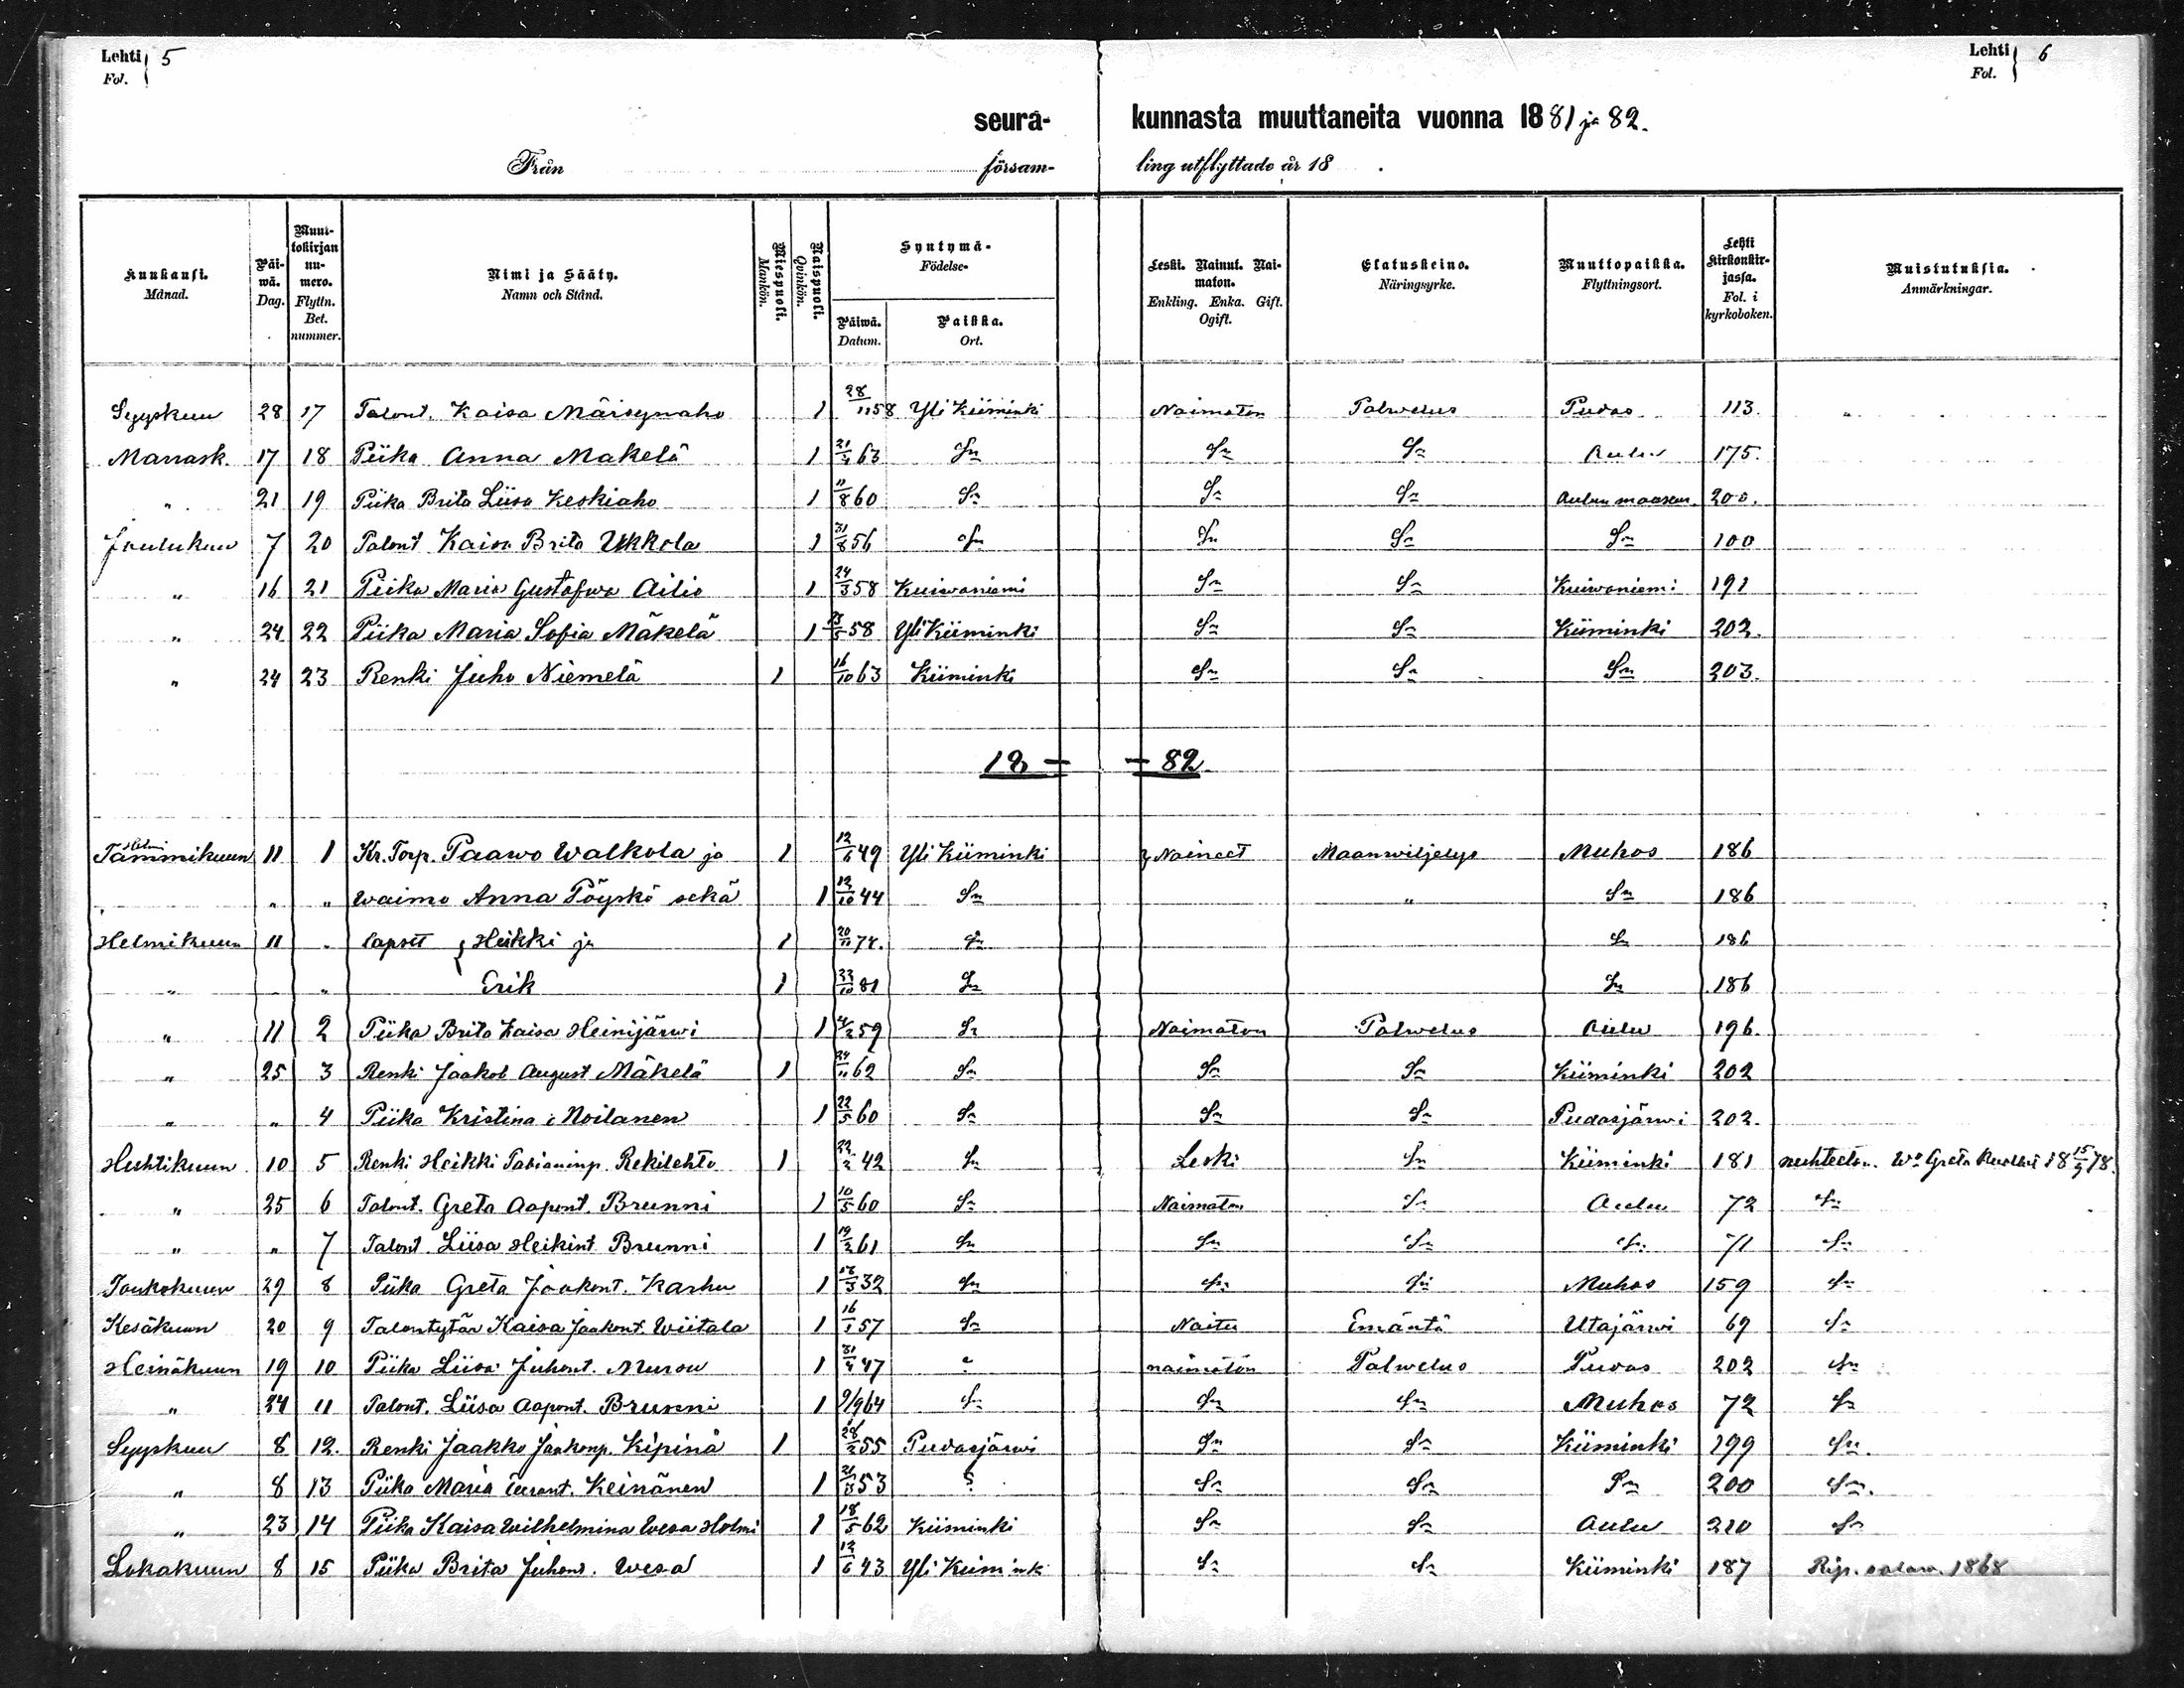 Lehti 5 Lehti 6
Fol. Fol.
seura- kunnasta muuttaneita vuonna 1881 ja 82.
Från församling utflyttade år 18 .
Kuukausi. Månad. Päiwä. Dag. Muuttokirjan numero. Flyttn. Bet. nummer. Nimi ja Sääty. Namn och Stånd. Miespuoli. Mankön. Naispuoli. Qvinkön. Syntymä- Födelse- Päiwä. Datum. Paikka. Ort. Leski. Nainut. Naimaton. Enkling. Enka. Gift. Ogift. Elatuskeino. Näringsyrke. Muuttopaikka. Flyttningsort. Lehti kirkonkirjassa. Fol. i kyrkoboken. Muistutuksia. Anmärkningar.
Syyskuu 28 17 Talont. Kaisa Märsynaho 1 28/11 58 Yli Kiiminki Naimaton Palwelus Pudas 113.
Marrask. 17 18 Piika Anna Makelä 1 21/4 63 Sn Sn Sn Oulu 175.
" 21 19 Piika Brita Liisa Keskiaho 1 11/8 60 Sn Sn Sn Oulun maaseur. 200.
Joulukuu 7 20 Talont Kaisa Brita Ukkola 1 31/8 56 Sn Sn Sn Sn 100
" 16 21 Piika Maria Gustafwa Ailio 1 24/3 58 Kuiwaniemi Sn Sn Kuiwaniemi 191
" 24 22 Piika Maria Sofia Mäkelä 1 58 Yli Kiiminki Sn Sn Kiiminki 202.
" 24 23 Renki Juho Niemelä 1 16/10 63 Kiiminki Sn Sn Sn 203.
18 — — 82.
Tammikuun Helmi 11 1 Kr. Torp. Paawo Walkola ja 1 12/6 49 Yli Kiiminki Naineet Maanwiljelys Muhos 186
" " waimo Anna Pöyskö sekä 1 12/10 44 Sn " Sn 186
Helmikuun 11 " lapset Heikki ja 1 74. Sn Sn 186
" " Erik 1 81 Sn Sn 186
" 11 2 Piika Brita Kaisa Heinijärwi 1 4/2 59 Sn Naimaton Palwelus Oulu 196.
" 25 3 Renki Jaakob August Mäkelä 1 24/11 62 Sn Sn Sn Kiiminki 202
" " 4 Piika Kristina Moilanen 1 22/5 60 Sn Sn Sn Pudasjärwi 202.
Huhtikuun 10 5 Renki Heikki Tabianinp. Rekilehto 1 22/2 42 Sn Leski Sn Kiiminki 181 nuhteeton. Wo Greta kuollut 18 15/9 78.
" 25 6 Talont. Greta Aapont. Brunni 1 10/5 60 Sn Naimaton Sn Oulu 72 Sn
" " 7 Talont. Liisa Heikint Brunni 1 19/2 61 Sn Sn Sn Sn 71 Sn
Toukokuun 29 8 Piika Greta Jaakont. Karhu 1 18/3 32 Sn Sn Sn Muhos 159 Sn
Kesäkuun 20 9 Talontytär Kaisa Jaakont. Wiitala 1 16/1 57 Sn Naitu Emäntä Utajärwi 69 Sn
Heinäkuun 19 10 Piika Liisa Juhont. Mursu 1 31/4 47 naimaton Palwelus Pudas 202 Sn
" 24 11 Talont. Liisa Aapont. Brunni 1 9/9 64 Sn Sn Sn Muhos 72 Sn
Syyskuu 8 12. Renki Jaakko Jaakonp. Kipinä 1 28/2 55 Pudasjärwi Sn Sn Kiiminki 199 Sn.
" 8 13 Piika Maria Keinänen 1 21/3 53 ? Sn Sn Sn 200 Sn.
" 23 14 Piika Kaisa Wilhelmina Wesa Holmi 1 18/5 62 Kiiminki Sn Sn Oulu 210 Sn
Lokakuun 8 15 Piika Brita Juhont. Wesa 1 12/6 43 Yli Kiiminki Sn Sn Kiiminki 187 Rip. salaw. 1868